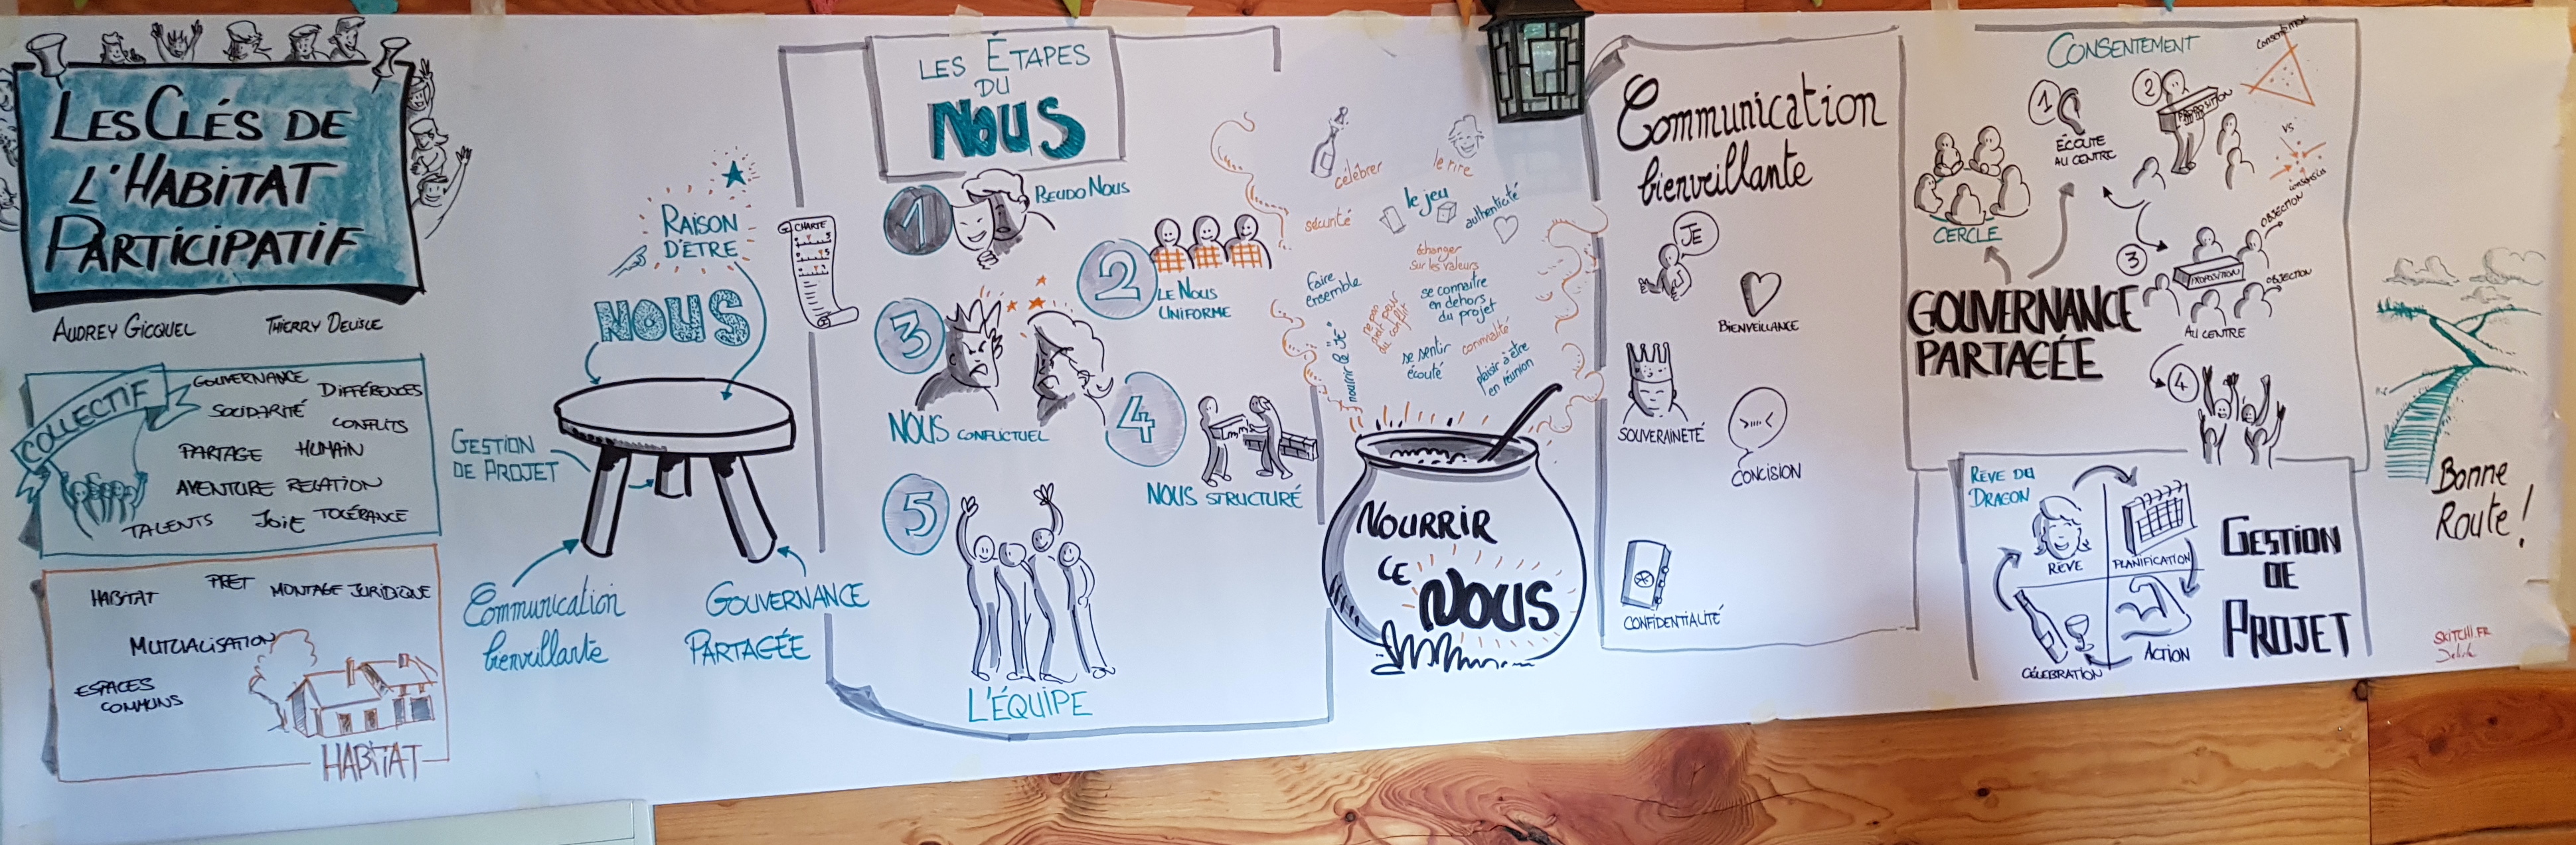 LES CLÉS DE
L'HABITAT
PARTICIPATIF
AUDREY GICQUEL
THIERRY DELISLE
COLLECTIF
GOUVERNANCE
DIFFÉRENCES
SOLIDARITÉ
CONFLITS
PARTAGE
HUMAIN
AVENTURE RELATION
TALENTS
JOIE
TOLÉRANCE
HABITAT
PRET
MONTAGE JURIDIQUE
MUTUALISATION
ESPACES
COMMUNS
HABITAT
RAISON
D'ÊTRE
NOUS
GESTION
DE PROJET
Communication
bienveillante
GOUVERNANCE
PARTAGÉE
CHARTE
LES ÉTAPES
DU
NOUS
1
PSEUDO NOUS
2
LE NOUS
UNIFORME
3
NOUS CONFLICTUEL
4
NOUS STRUCTURÉ
5
L'ÉQUIPE
célébrer
le rire
sécurité
le jeu
authenticité
échanger
sur les valeurs
faire
ensemble
se connaitre
en dehors
du projet
ne pas
avoir peur
du conflit
nourrir le "je"
se sentir
écouté
convivialité
plaisir à être
en réunion
NOURRIR
CE
NOUS
Communication
bienveillante
JE
BIENVEILLANCE
SOUVERAINETÉ
CONCISION
CONFIDENTIALITÉ
CONSENTEMENT
1
ÉCOUTE
AU CENTRE
2
PROPOSITION
consentement
VS
consensus
CERCLE
3
PROPOSITION
OBJECTION
OBJECTION
AU CENTRE
4
GOUVERNANCE
PARTAGÉE
RÊVE DU
DRAGON
RÊVE
PLANIFICATION
ACTION
CÉLÉBRATION
GESTION
DE
PROJET
Bonne
Route !
SKITCHI.FR
Delisle